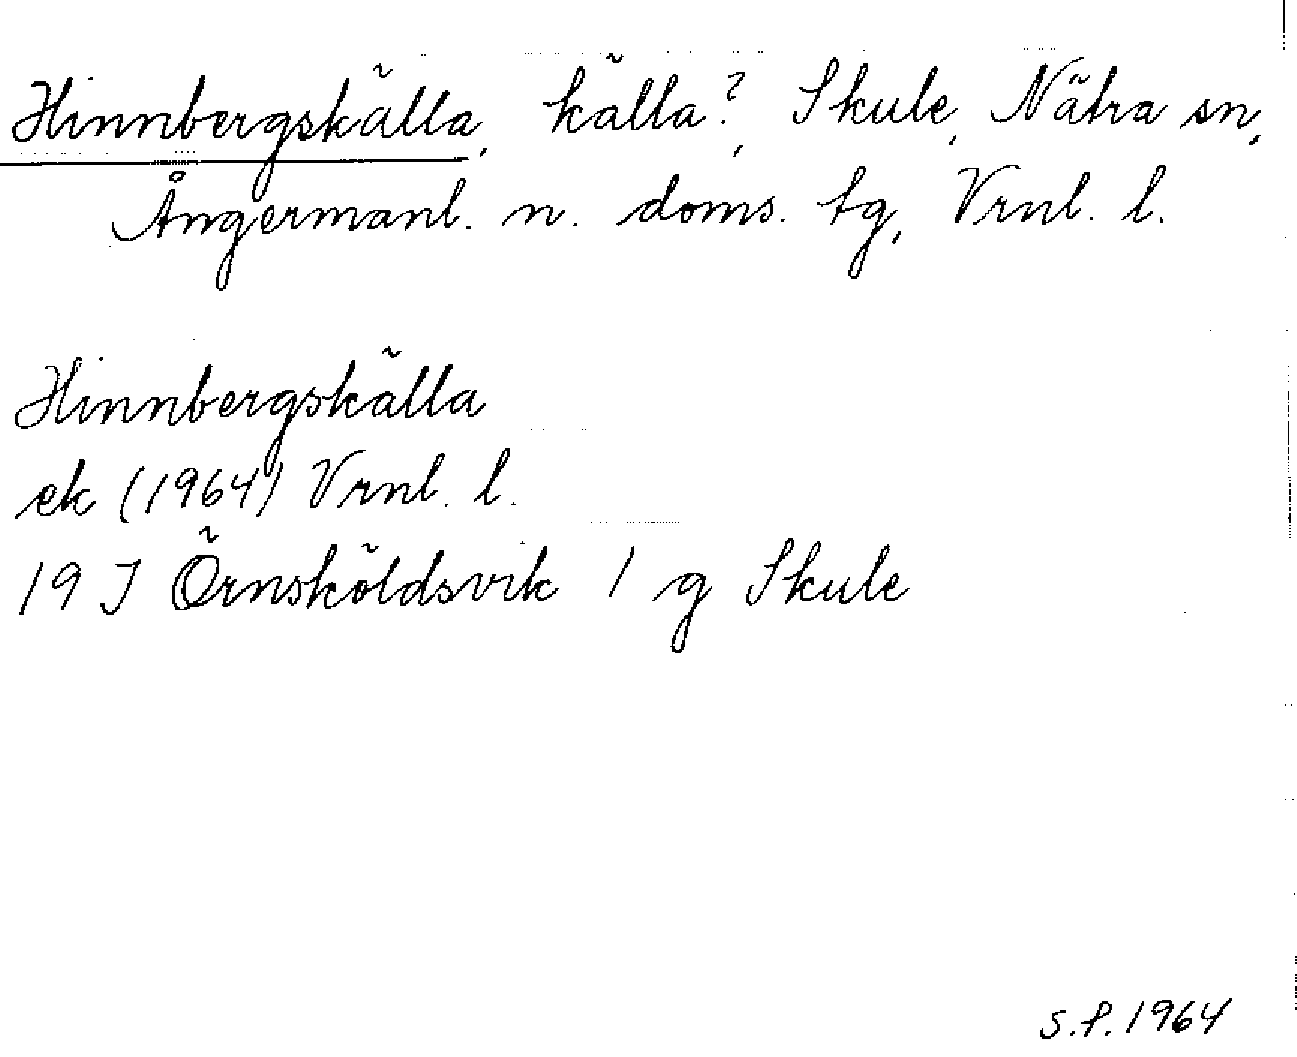 Hinnbergskälla, källa?, Skule, Nätra sn,
Ångermanl. n. doms. tg, Vrnl. l.
Hinnbergskälla
ek (1964) Vrnl. l.
19 J Örnsköldsvik 1 g Skule
S.P. 1964